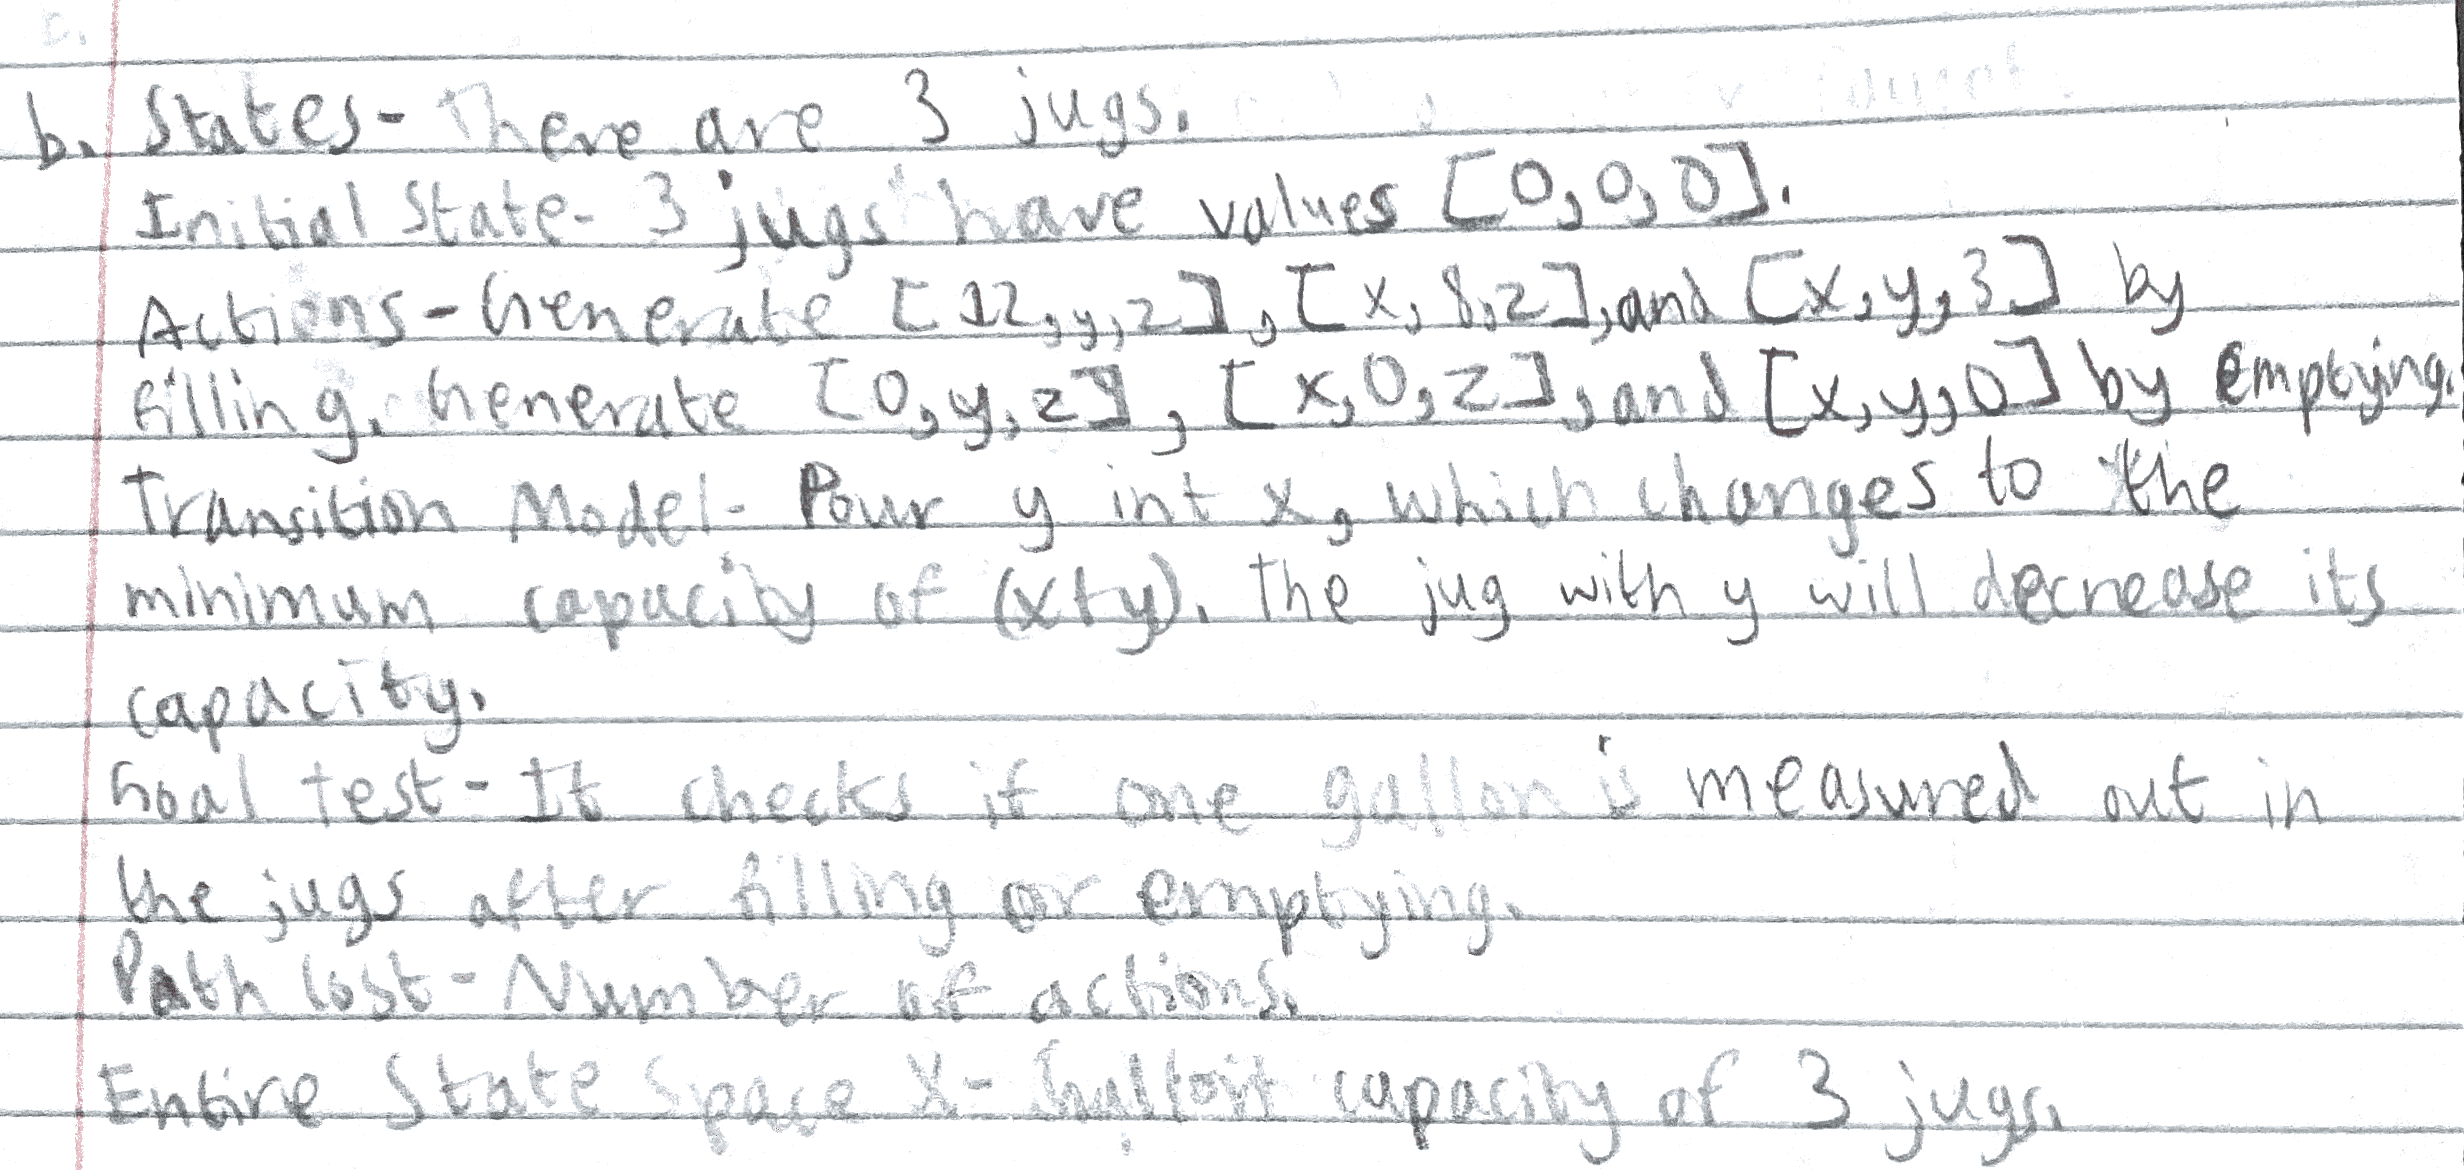 b. States- There are 3 jugs.
Initial State- 3 jugs have values [0,0,0].
Actions-Generate [12,y,z], [x,8,z], and [x,y,3] by
filling. Generate [0,y,z], [x,0,z], and [x,y,0] by emptying.
Transition Model- Pour y int x, which changes to the
minimum capacity of (x+y). The jug with y will decrease its
capacity.
Goal test- It checks if one gallon is measured out in
the jugs after filling or emptying.
Path Cost- Number of actions.
Entire State Space X- capacity of 3 jugs.